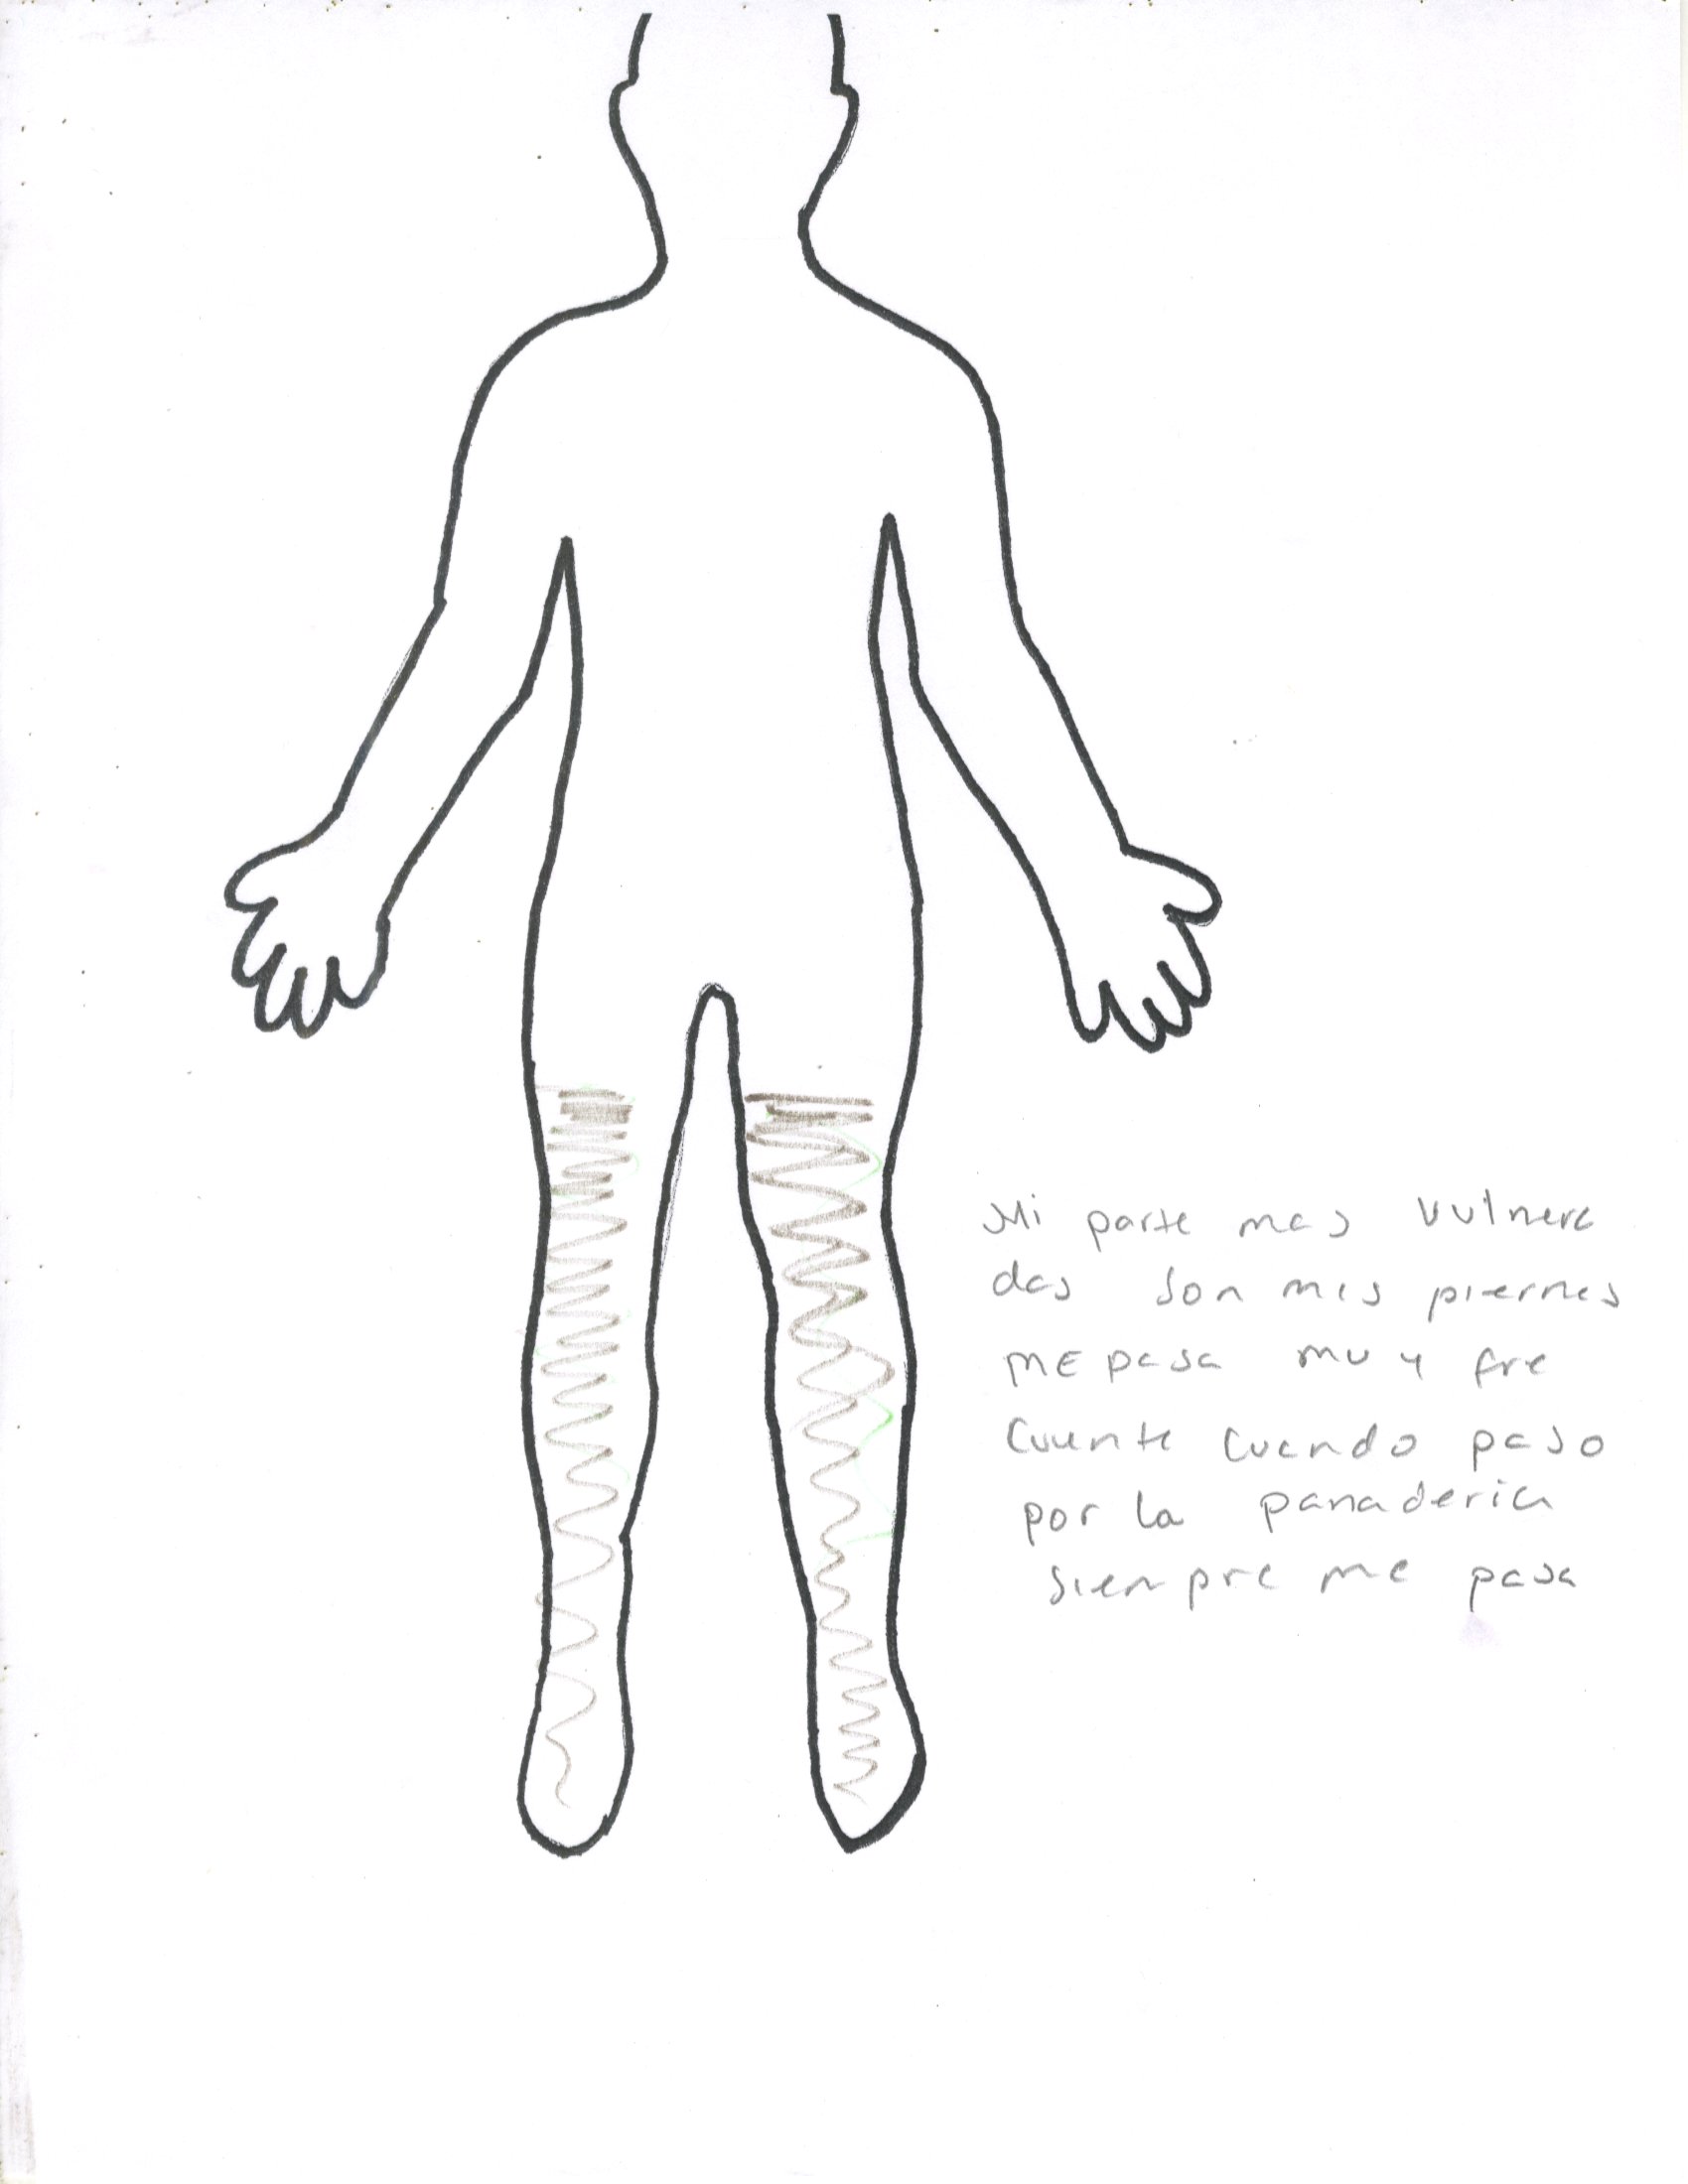 Mi parte mas vulnera
das son mis piernas
ME pasa muy fre
cuente cuando paso
por la panaderia
siempre me pasa